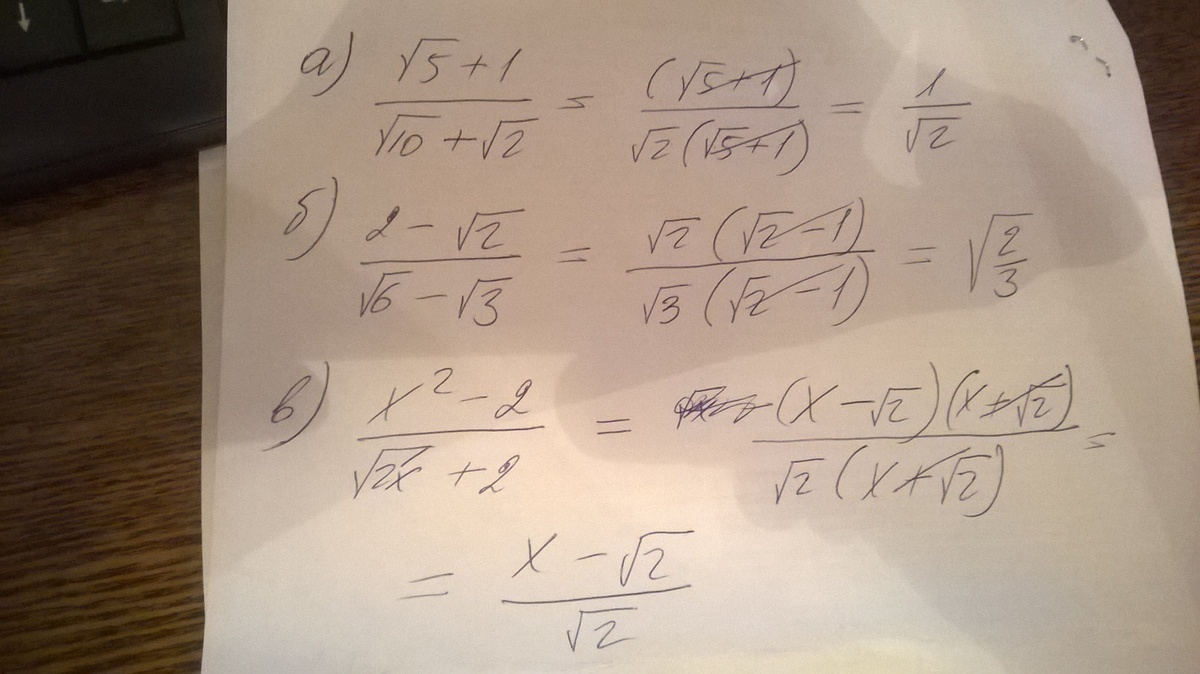 а) (√5 + 1)/(√10 + √2) = (√5 + 1)/(√2 (√5 + 1)) = 1/√2
б) (2 - √2)/(√6 - √3) = √2 (√2 - 1)/(√3 (√2 - 1)) = √(2/3)
в) (x² - 2)/(√2x + 2) = (x - √2)(x + √2)/(√2 (x + √2)) =
= (x - √2)/√2